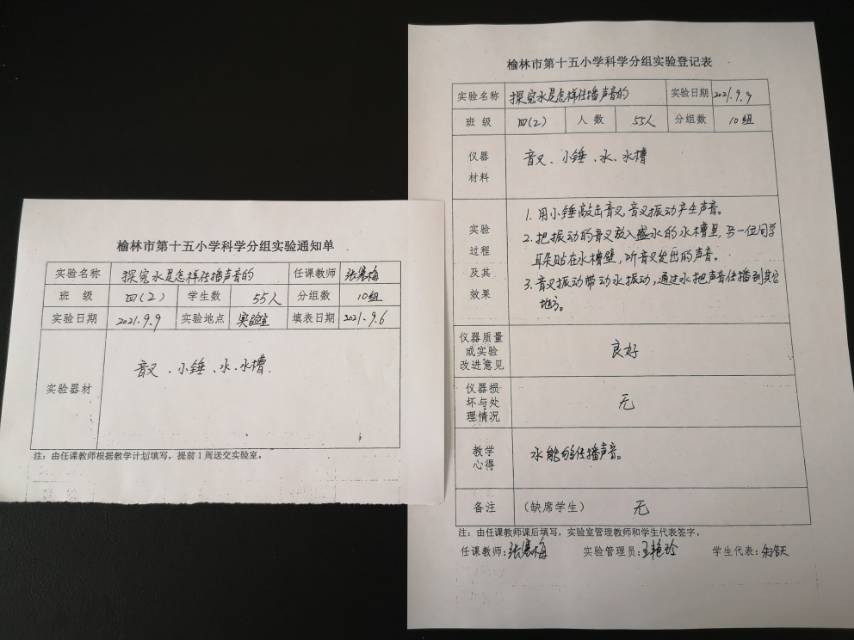 榆林市第十五小学科学分组实验通知单
实验名称 探究水是怎样传播声音的 任课教师 张寒梅
班 级 四(2) 学生数 55人 分组数 10组
实验日期 2021.9.9 实验地点 实验室 填表日期 2021.9.6
实验器材 音叉、小锤、水、水槽
注：由任课教师根据教学计划填写，提前1周送交实验室。
榆林市第十五小学科学分组实验登记表
实验名称 探究水是怎样传播声音的 实验日期 2021.9.9
班 级 四(2) 人 数 55人 分组数 10组
仪器
材料
音叉、小锤、水、水槽
实验
过程
及其
效果
1.用小锤敲击音叉,音叉振动产生声音。
2.把振动的音叉放入盛水的水槽里,另一位同学
耳朵贴在水槽壁,听音叉发出的声音。
3.音叉振动带动水振动,通过水把声音传播到其它
地方。
仪器质量
或实验
改进意见
良好
仪器损
坏与处
理情况
无
教学
心得
水能够传播声音。
备注 (缺席学生) 无
注：由任课教师课后填写，实验室管理教师和学生代表签字。
任课教师:张寒梅 实验管理员:王艳玲 学生代表: